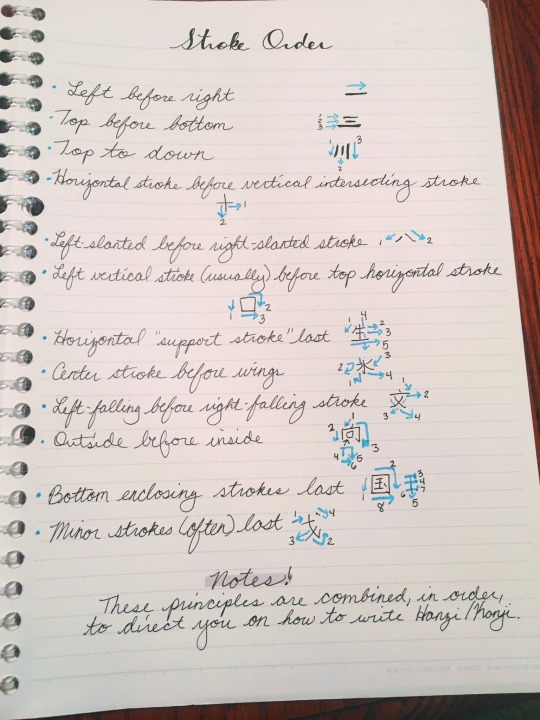 Stroke Order
• Left before right 一
• Top before bottom 1 2 3 三
• Top to down 1 2 3 川
• Horizontal stroke before vertical intersecting stroke
十 1 2
• Left-slanted before right-slanted stroke 1 八 2
• Left vertical stroke (usually) before top horizontal stroke
口 1 2 3
• Horizontal "support stroke" last 生 1 4 2 3 5
• Center stroke before wings 2 水 3 1 4
• Left-falling before right-falling stroke 文 1 2 3 4
• Outside before inside 2 向 1 3 4 5 6
• Bottom enclosing strokes last 1 国 2 3 4 7 6 5 8
• Minor strokes (often) last 戈 1 4 3 2
Notes!
These principles are combined, in order,
to direct you on how to write Hanzi/Kanji.